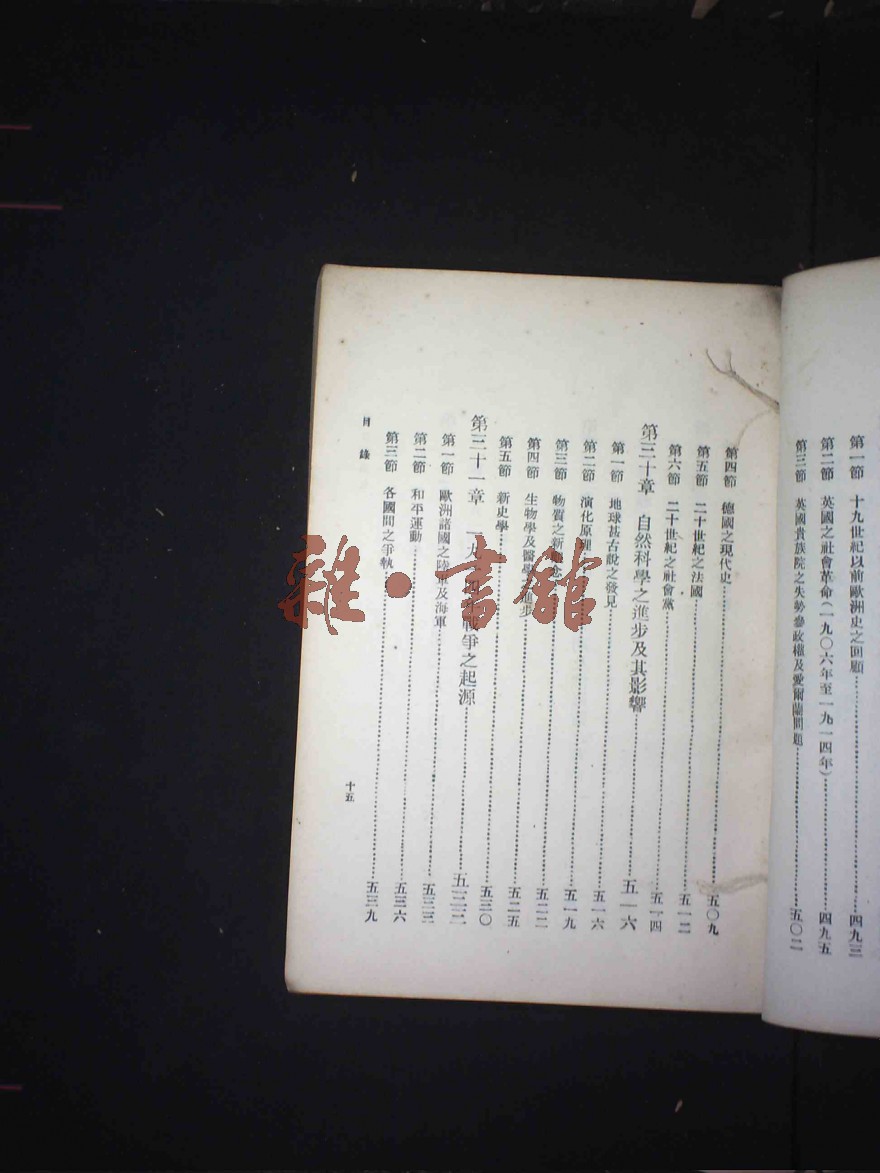 第一節 十九世紀以前歐洲史之回顧 四九三
第二節 英國之社會革命(一九〇六年至一九一四年) 四九五
第三節 英國貴族院之失勢參政權及愛爾蘭問題 五〇二
第四節 德國之現代史 五〇九
第五節 二十世紀之法國 五一二
第六節 二十世紀之社會黨 五一四
第三十章 自然科學之進步及其影響 五一六
第一節 地球甚古說之發見 五一六
第二節 演化原理 五一九
第三節 物質之新 五二二
第四節 生物學及醫學 進步 五二五
第五節 新史學 五三〇
第三十一章 一九一四年戰爭之起源 五三三
第一節 歐洲諸國之陸軍及海軍 五三三
第二節 和平運動 五三六
第三節 各國間之爭執 五三九
目錄
十五
雜·書館